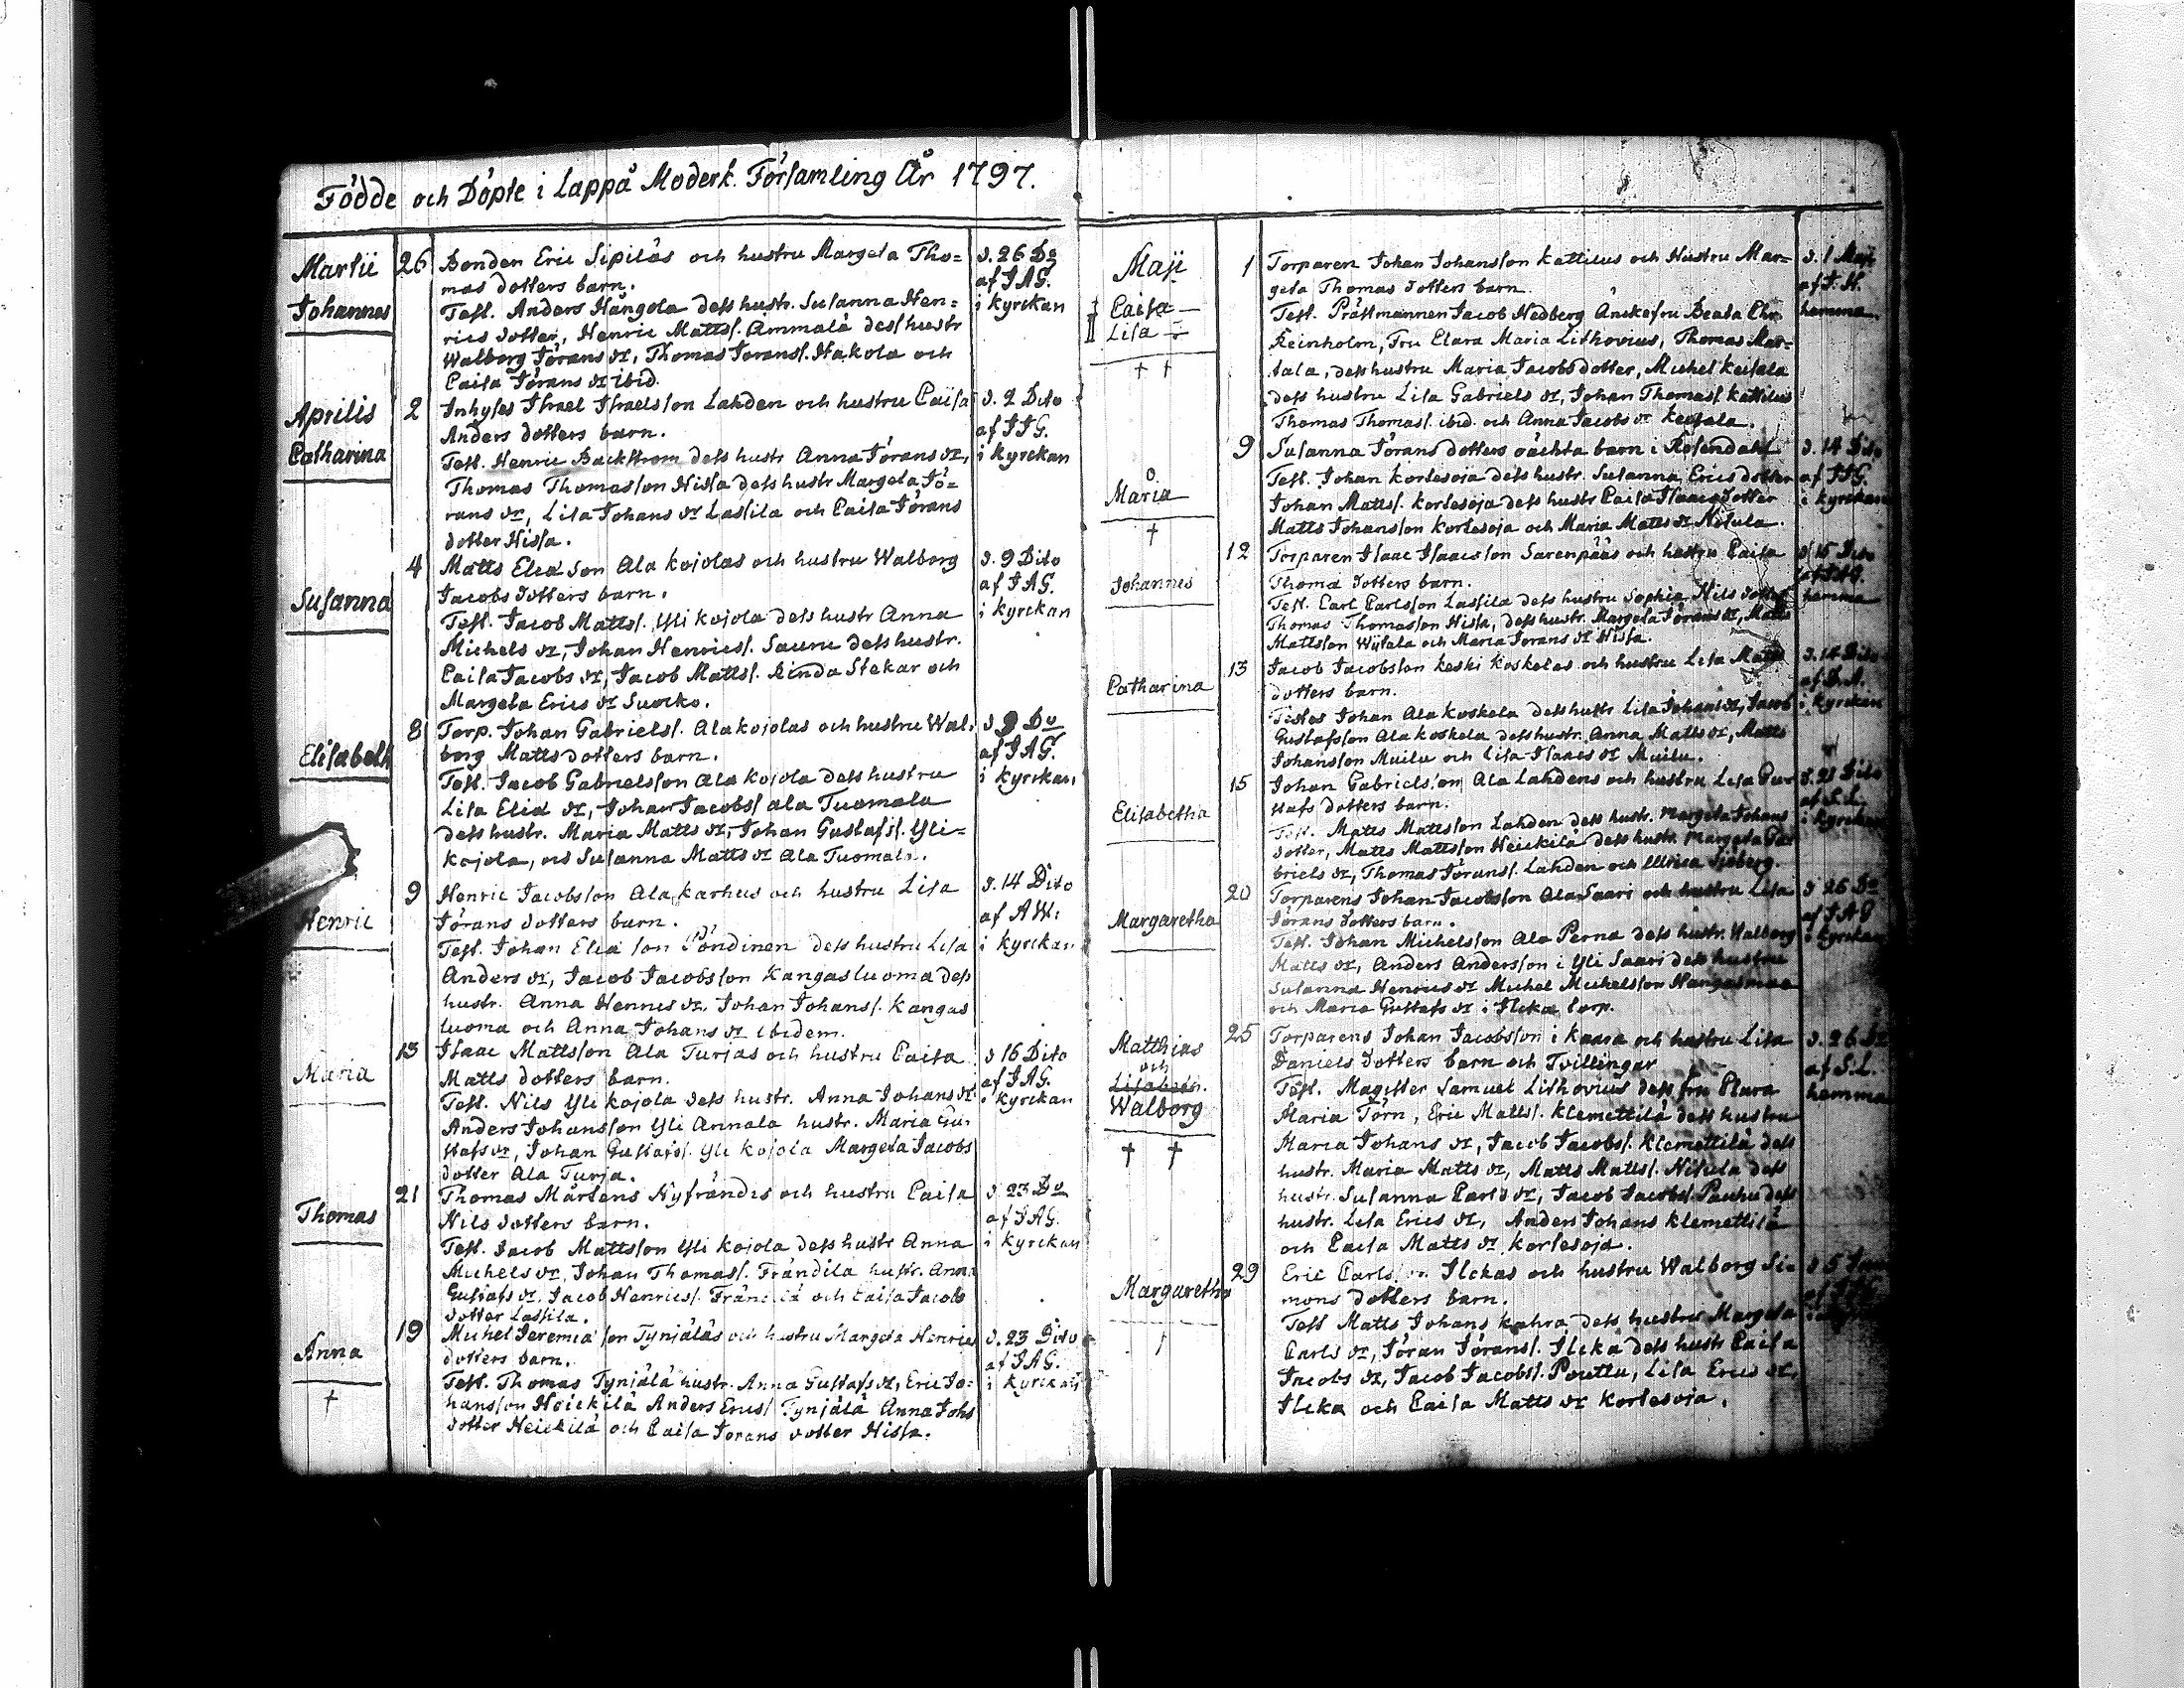 Födde och Döpte i Lappå Moderk. Församling År 1797.
Martii 26 Bonden Eric Sipiläs och hustru Margeta Tho= d. 26 Do
mas dotters barn. af JAG.
Johannes Test. Anders Hångola dess hustr. Susanna Hen= i kyrckan
rics dotter, Henric Matts/. Ammalä dess hustr
Walborg Jörans dr, Thomas Jörans/. Hakola och
Caisa Jörans dr ibid.
Aprilis 2 Inhyses Israel Israelsson Lahden och hustru Caisa d. 2 Dito
Anders dotters barn. af JAG.
Catharina Test. Henric Backstrom dess hustr Anna Jörans dr, i kyrckan
Thomas Thomasson Hissa dess hustr Margeta Jö=
rans dr, Lisa Johans dr Lassila och Caisa Jörans
dotter Hissa.
4 Matts Eliæ son Ala kojolas och hustru Walborg d. 9 Dito
Jacobs dotters barn. af JAG.
Susanna Test. Jacob Matts/. Yli kojola dess hustr Anna i kyrckan
Michels dr, Johan Henrics/. Sauru dess hustr.
Caisa Jacobs dr, Jacob Matts/. Rinda Stekar och
Margeta Erics dr Suocko.
8 Torp. Johan Gabriels/. Alakojolas och hustru Wal= d 9 Do
Elisabeth borg Matts dotters barn. af JAG.
Test. Jacob Gabrielsson Ala kojola dess hustru i kyrckan
Lisa Eliæ dr, Johan Jacobs/ ala Tuomala
dess hustr. Maria Matts dr, Johan Gustafs/. Yli=
kojola, och Susanna Matts dr Ala Tuomala.
9 Henric Jacobsson Ala karhus och hustru Lisa d. 14 Dito
Henric Jörans dotters barn. af AW:
Test. Johan Eliæ son Pöndinen dess hustru Lisa i kyrckan
Anders dr, Jacob Jacobsson Kangasluoma dess
hustr. Anna Hennes dr, Johan Johans/. Kangas
luoma och Anna Johans dr ibidem.
13 Isaac Mattsson Ala Turjas och hustru Caisa d 16 Dito
Maria Matts dotters barn. af JAG.
Test. Nils Yli kojola dess hustr. Anna Johans dr i kyrckan
Anders Johansson Yli Annala hustr. Maria Gu=
stafs dr, Johan Gustafs/. Yli kojola Margeta Jacobs
dotter Ala Turja.
21 Thomas Mårtens Nyfrändis och hustru Caisa d. 23 Do
Thomas Nils dotters barn. af JAG.
Test. Jacob Mattsson Yli kojola dess hustr Anna i kyrckan
Michels dr, Johan Thomas/. Frändilä hustr. Anna
Gustafs dr, Jacob Henrics/. Frändilä och Caisa Jacobs
dotter Lassila.
19 Michel Jeremiæ son Tynjäläs och hustru Margeta Henrics d. 23 Dito
Anna dotters barn. af JAG.
Test. Thomas Tynjälä hustr. Anna Gustafs dr, Eric Jo= i kyrckan
† hansson Heickilä Anders Erics/ Tynjälä Anna Johs
dotter Heickilä och Caisa Jorans dotter Hissa.
Maji 1 Torparen Johan Johansson Kattilus och Hustru Mar= d. 1 Maji
geta Thomas dotters barn. af J. H.
Caisa Test. Prästmannen Jacob Hedberg Änckefru Beata Chr. hemma
Lisa Reinholm, Fru Clara Maria Lithovius, Thomas
† † tala, dess hustru Maria Jacobs dotter, Michel Keisala
dess hustru Lisa Gabriels dr, Johan Thomas/. Kattilus
Thomas Thomas/. ibid. och Anna Jacobs dr Keisala.
9 Susanna Jörans dotters oächta barn i Rosendahl d. 14 Dito
Test. Johan Kortesoja dess hustr. Susanna Erics dotter af JAG.
Maria Johan Matts/. Kortesoja dess hustr Caisa Isaacs dotter i kyrckan
† Matts Johansson Kortesoja och Maria Matts dr Nitula.
12 Torparen Isaac Isaacsson Sarenpääs och hustru Caisa d 15 Dito
Johannes Thomæ dotters barn. af JAG.
Test. Carl Carlsson Lassila dess hustru Sophia Nils dotter hemma
Thomas Thomasson Hissa, dess hustr. Margeta Jörans dr, Matts
Mattsson Wijtala och Maria Jorans dr Hissa.
13 Jacob Jacobsson Keski Koskelas och hustru Lisa Matts d. 14 Dito
Catharina dotters barn.
Testes Johan Ala koskela dess hustr Lisa Johans dr, Jacob i kyrckan
Gustafsson Ala koskela dess hustr. Anna Matts dr, Matts
Johansson Muilu och Lisa Isaacs dr Muilu.
15 Johan Gabrielsson Ala Lahdens och hustru Lisa Gus= d. 21 Dito
Elisabetha tafs dotters barn. af S. L.
Test. Matts Mattsson Lahden dess hustr. Margeta Johans i kyrckan
dotter, Matts Mattsson Heickilä dess hustr. Margeta Ga=
briels dr, Thomas Jörans/. Lahden och Ullrica Sjöberg.
20 Torparens Johan Jacobsson Ala Saari och hustru Lisa d 26 Do
Margaretha Jörans dotters barn. af JAG
Test. Johan Michelsson Ala Perna dess hustr. Walborg i kyrckan
Matts dr, Anders Andersson i Yli Saari dess hustru
Susanna Henrics dr Michel Michelsson Hangasmaa
och Maria Gustafs dr i Ilcka torp.
Matthias 25 Torparens Johan Jacobsson i Kaara och hustru Lisa d. 26 Do
och Daniels dotters barn och Tvillingar af S. L.
Walborg Test. Magister Samuel Lithovius dess fru Clara hemma
Maria Törn, Eric Matts/. Klemettilä dess hustru
† † Maria Johans dr, Jacob Jacobs/. Klemettilä dess
hustr. Maria Matts dr, Matts Matts/. Nitula dess
hustr. Susanna Carls dr, Jacob Jacobs/. Pauhu dess
hustr. Lisa Erics dr, Anders Johans Klemettilä
och Caisa Matts dr Kortesoja.
29 Eric Carlsson Ilckas och hustru Walborg Si= d 5
Margaretha mons dotters barn.
† Test Matts Johans Kahra dess hustru Margeta
Carls dr, Jöran Jörans/. Ilcka dess hustr Caisa
Jacobs dr, Jacob Jacobs/. Pouttu, Lisa Erics dr
Ilcka och Caisa Matts dr Kortesoja.